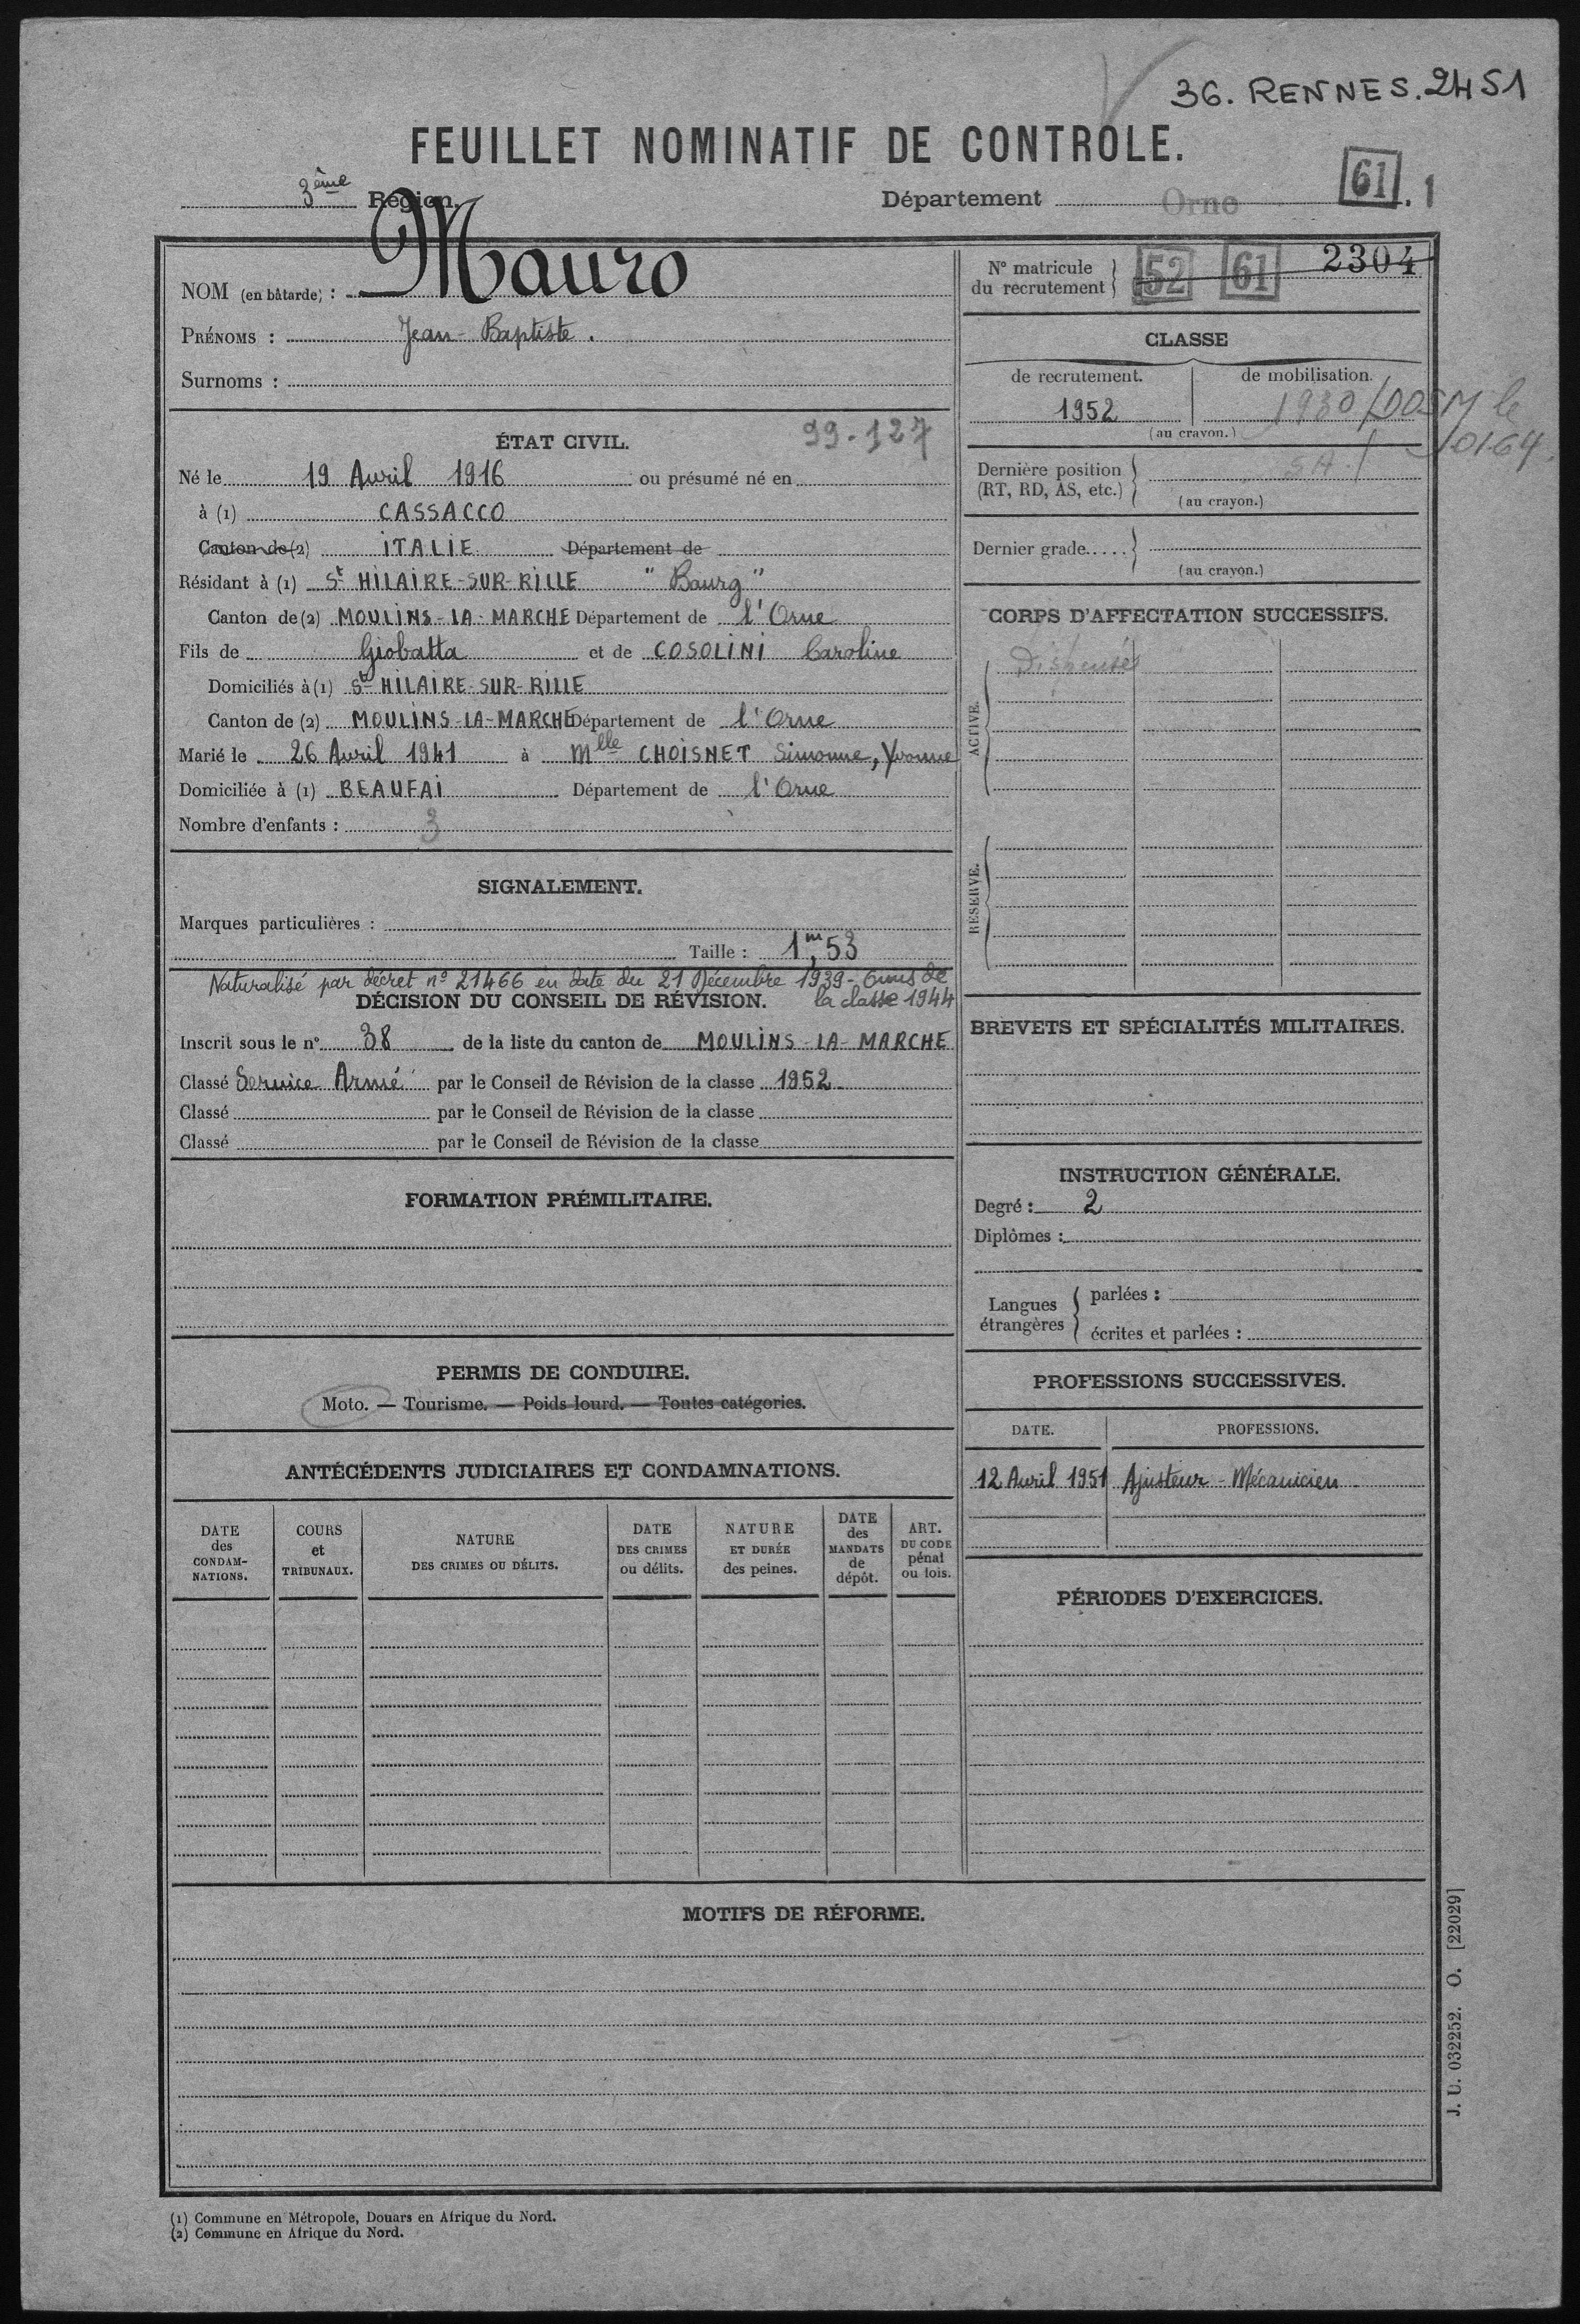 36. RENNES. 2451
FEUILLET NOMINATIF DE CONTROLE.
3ème Région.
Département Orne 61.1
NOM (en bâtarde) : Mauro
PRÉNOMS : Jean-Baptiste.
Surnoms :
ÉTAT CIVIL. 99-127
Né le 19 Avril 1916 ou présumé né en
à (1) CASSACCO
Canton de (2) ITALIE Département de
Résidant à (1) St HILAIRE-SUR-RILLE "Bourg"
Canton de (2) MOULINS-LA-MARCHE Département de l'Orne
Fils de Giobatta et de COSOLINI Caroline
Domiciliés à (1) St HILAIRE-SUR-RILLE
Canton de (2) MOULINS-LA-MARCHE Département de l'Orne
Marié le 26 Avril 1941 à Mlle CHOISNET Simonne, Yvonne
Domiciliée à (1) BEAUFAI Département de l'Orne
Nombre d'enfants : 3
SIGNALEMENT.
Marques particulières :
Taille : 1m,53
Naturalisé par décret n° 21466 en date du 21 Décembre 1939 - Omis de
la classe 1944
DÉCISION DU CONSEIL DE RÉVISION.
Inscrit sous le n° 38 de la liste du canton de MOULINS-LA-MARCHE
Classé Service Armé par le Conseil de Révision de la classe 1952
Classé par le Conseil de Révision de la classe
Classé par le Conseil de Révision de la classe
FORMATION PRÉMILITAIRE.
PERMIS DE CONDUIRE.
Moto. — Tourisme. — Poids lourd. — Toutes catégories.
ANTÉCÉDENTS JUDICIAIRES ET CONDAMNATIONS.
DATE des CONDAM-NATIONS.
COURS et TRIBUNAUX.
NATURE DES CRIMES OU DÉLITS.
DATE DES CRIMES ou délits.
NATURE ET DURÉE des peines.
DATE des MANDATS de dépôt.
ART. DU CODE pénal ou lois.
N° matricule du recrutement 52 61 2304
CLASSE
de recrutement. de mobilisation.
1952 1930 / DOSM le
(au crayon.)
Dernière position (RT, RD, AS, etc.) SA.
(au crayon.)
Dernier grade.....
(au crayon.)
CORPS D'AFFECTATION SUCCESSIFS.
ACTIVE.
Dispensé
RÉSERVE.
BREVETS ET SPÉCIALITÉS MILITAIRES.
INSTRUCTION GÉNÉRALE.
Degré : 2
Diplômes :
Langues étrangères
parlées :
écrites et parlées :
PROFESSIONS SUCCESSIVES.
DATE. PROFESSIONS.
12 Avril 1951 Ajusteur-Mécanicien
PÉRIODES D'EXERCICES.
MOTIFS DE RÉFORME.
J. U. 032252. O. [22029]
(1) Commune en Métropole, Douars en Afrique du Nord.
(2) Commune en Afrique du Nord.